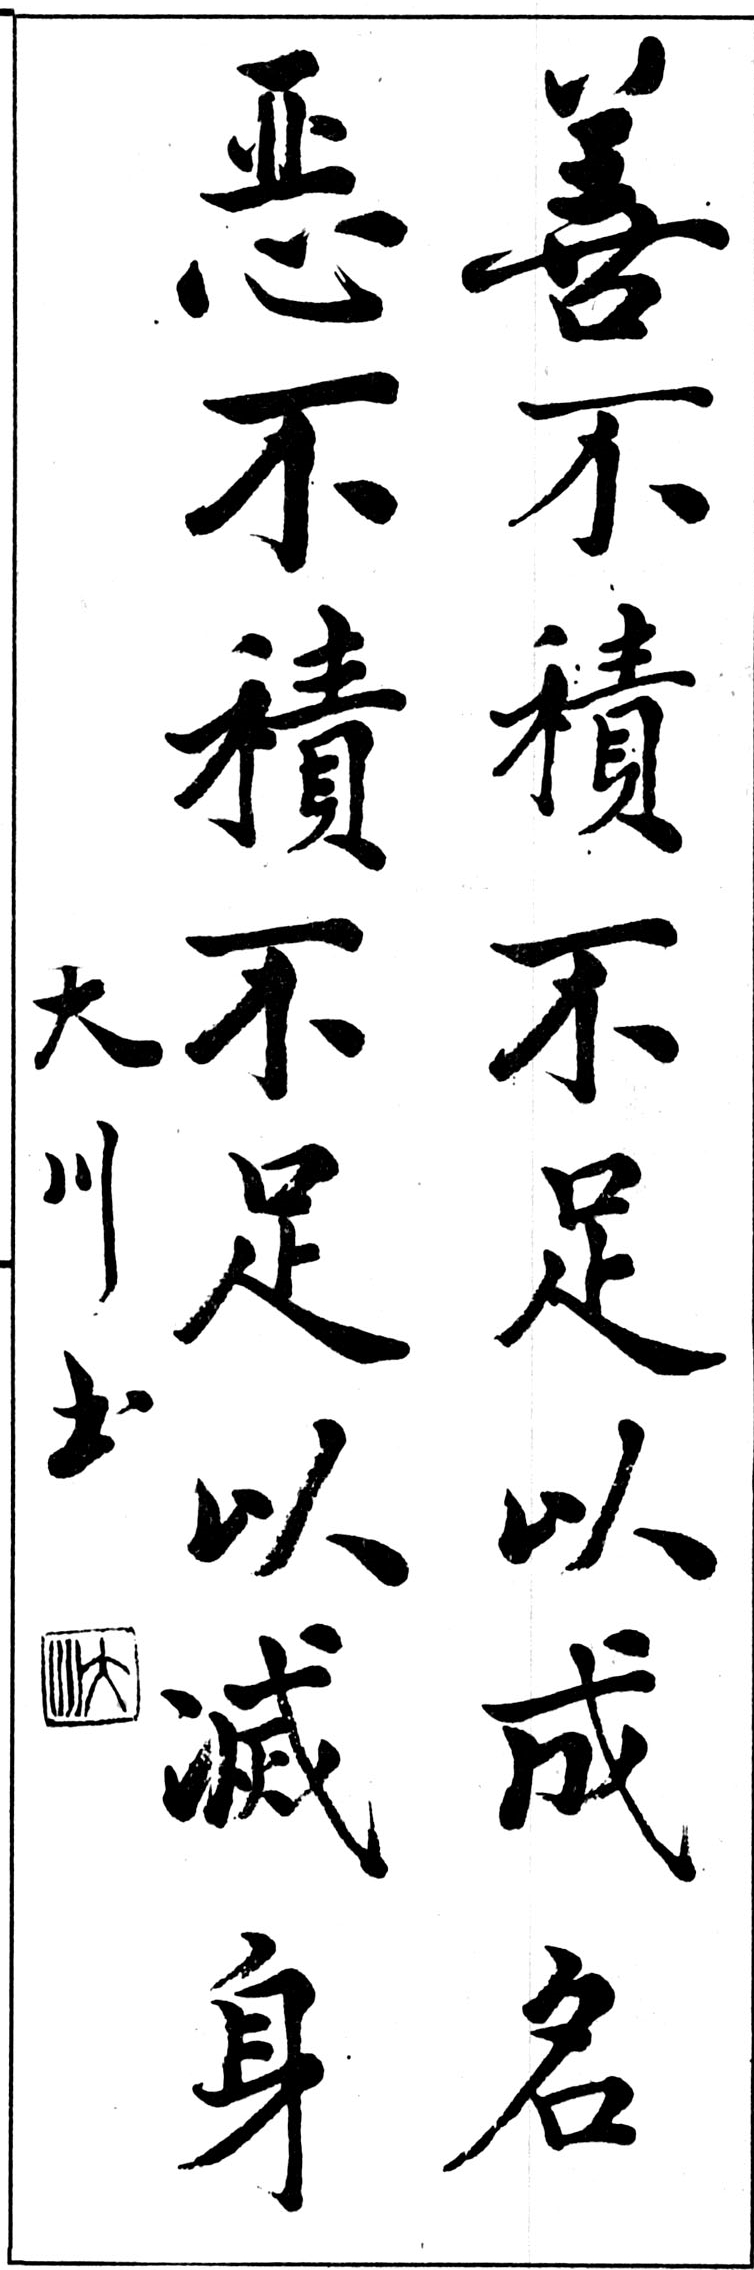 善不積不足以成名
恶不積不足以滅身
大川书
大川